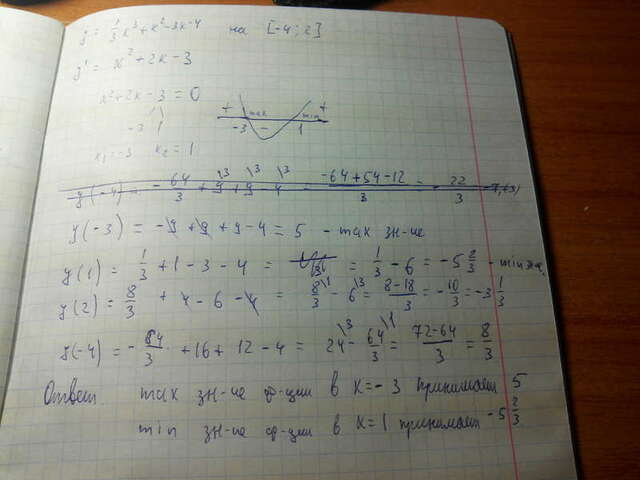 y = 1/3 x³ + x² - 3x - 4 на [-4; 2]
y' = x² + 2x - 3
x² + 2x - 3 = 0
-3 1
x₁ = -3 x₂ = 1
+ max min +
-3 - 1
y(-4) = - 64/3 + 9 + 9 - 4 = (-64 + 54 - 12)/3 = - 22/3
y(-3) = -9 + 9 + 9 - 4 = 5 - max зн-ие
y(1) = 1/3 + 1 - 3 - 4 = = 1/3 - 6 = -5 2/3 - min зн.
y(2) = 8/3 + 4 - 6 - 4 = 8/3 - 6 = (8-18)/3 = - 10/3 = -3 1/3
y(-4) = - 64/3 + 16 + 12 - 4 = 24 - 64/3 = (72-64)/3 = 8/3
Ответ. max зн-ие ф-ции в x = -3 принимает 5
min зн-ие ф-ции в x = 1 принимает -5 2/3